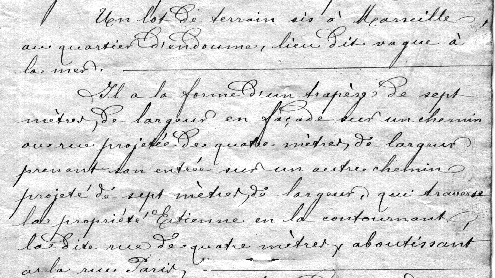 Un lot de terrain sis à Marseille,
au quartier d'endoume, lieu dit vague à
la mer.
Il a la forme d'un trapèze de sept
mètres, de largeur en façade sur un chemin
ou rue projetée de quatre mètres, de largeur
prenant son entrée sur un autre chemin
projeté de sept mètres, de largeur, qui traverse
la propriété Estienne en la contournant,
la dite rue de quatre mètres y aboutissant
à la rue Paris,